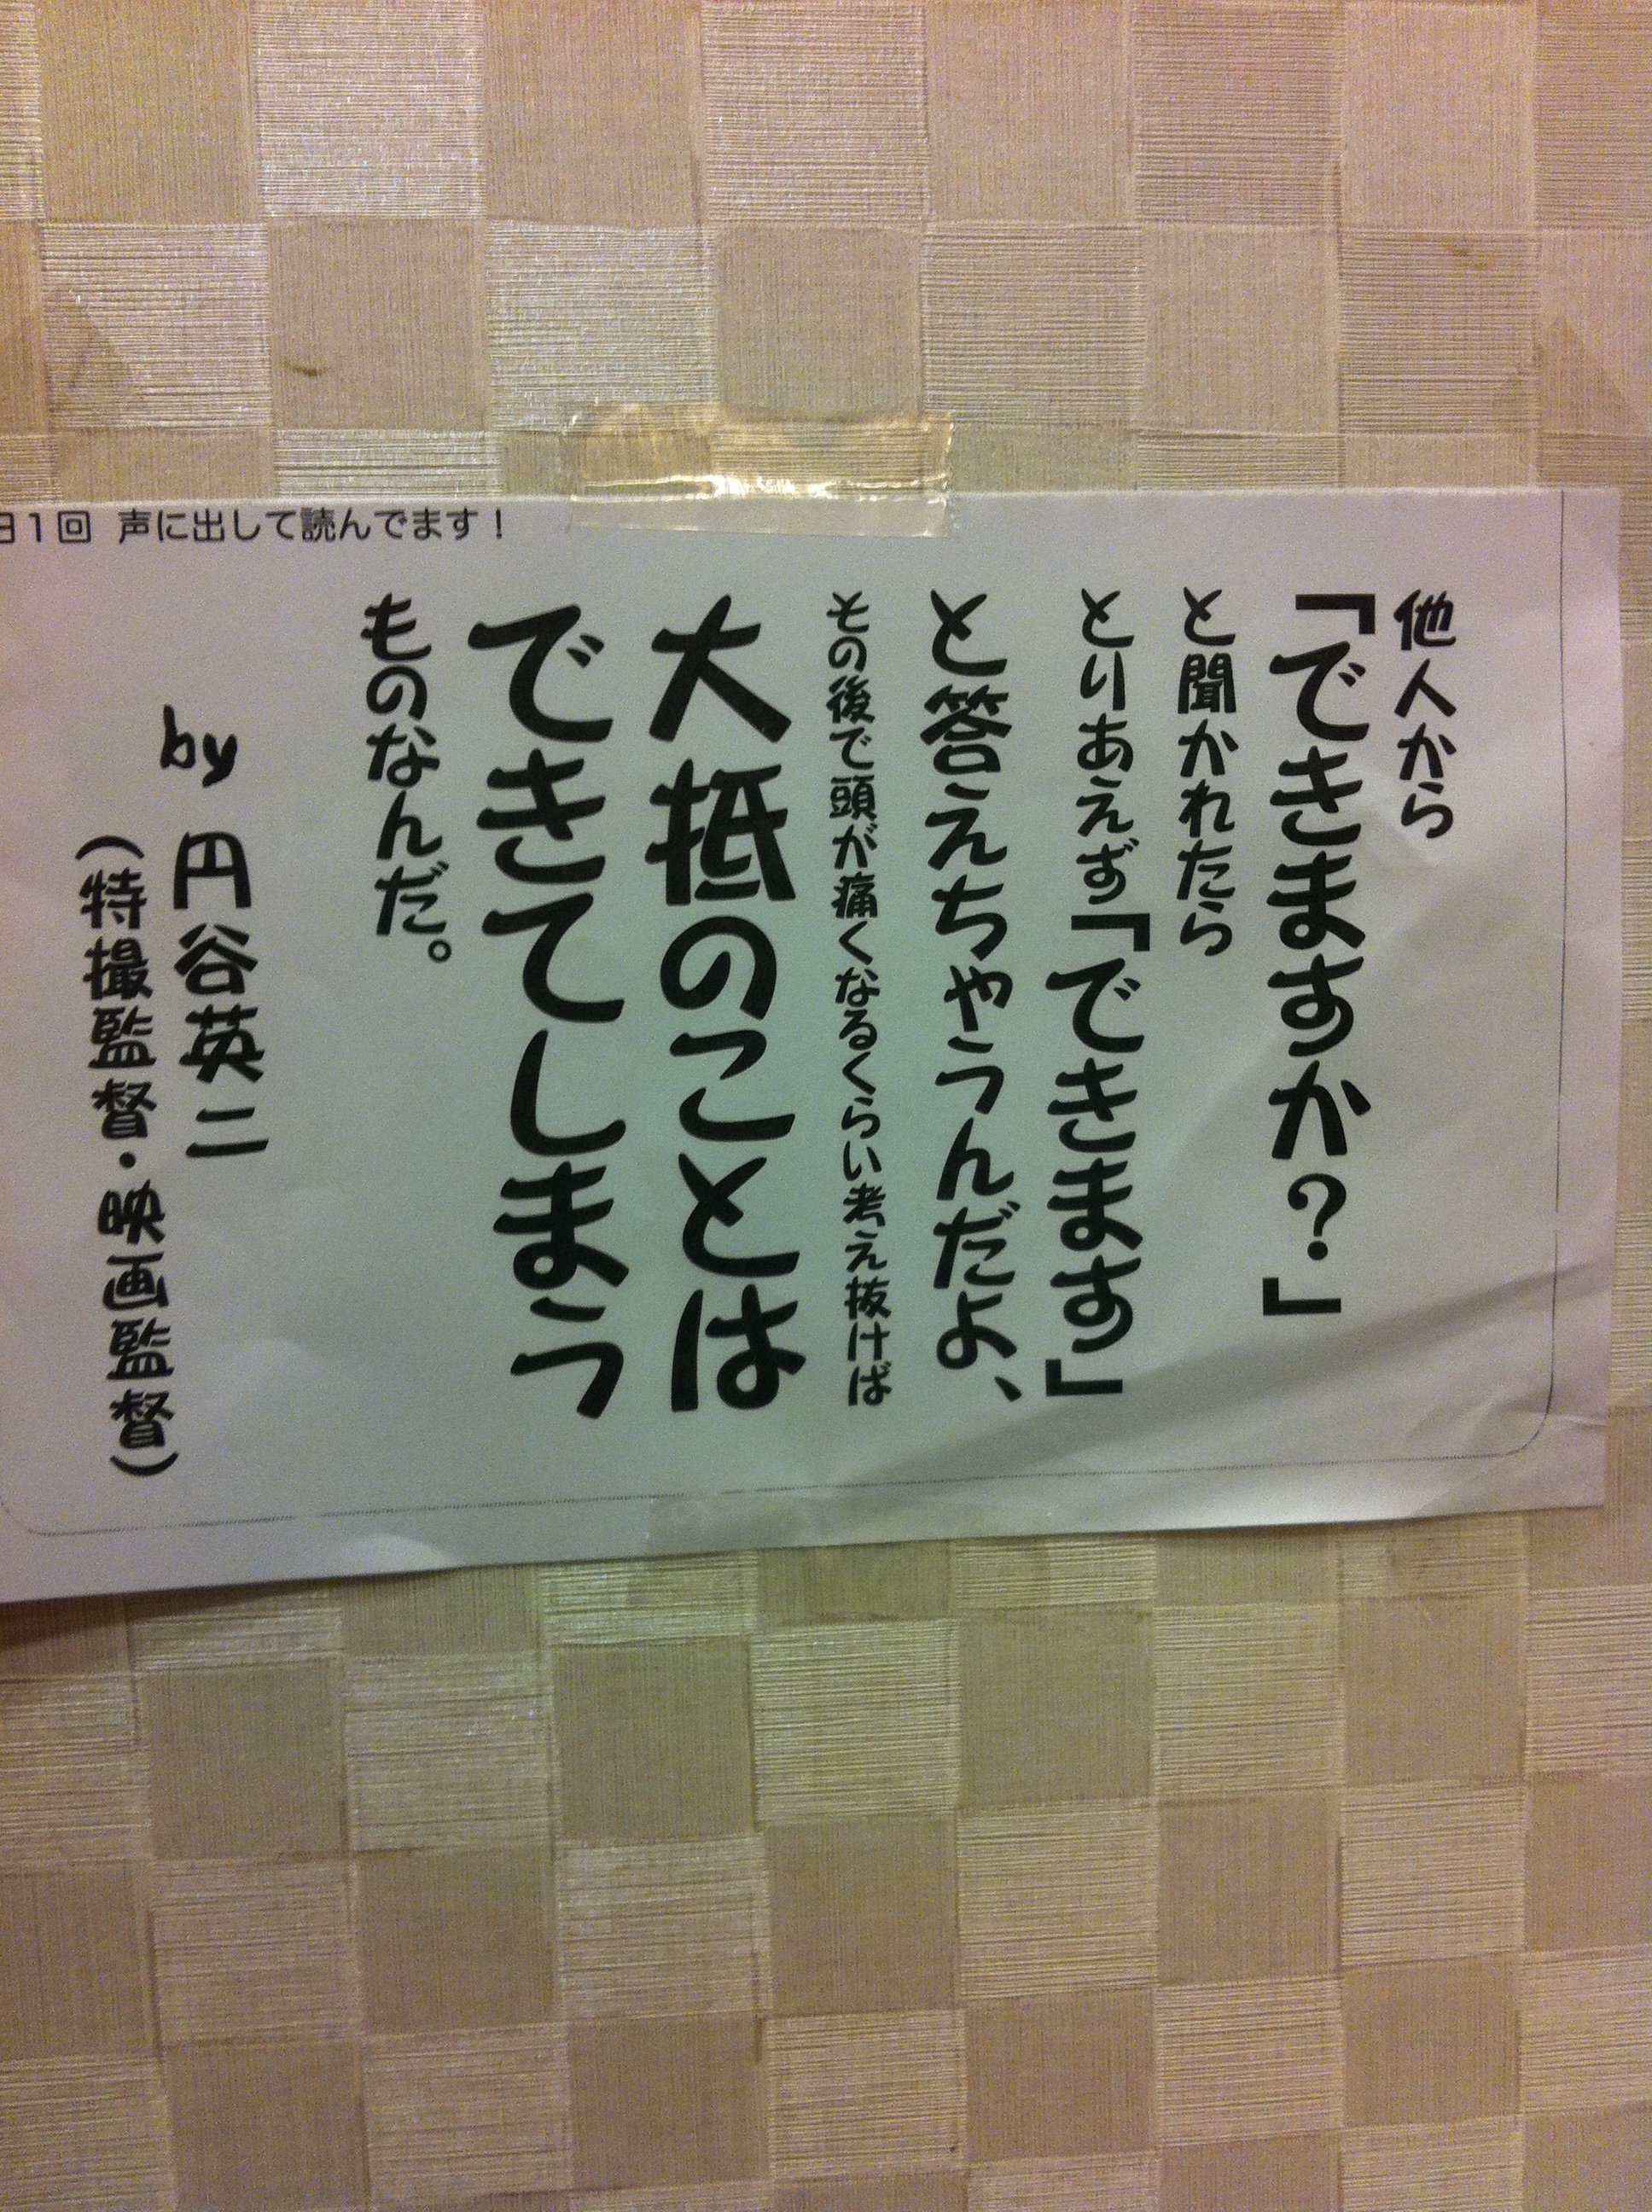 日1回 声に出して読んでます！
他人から
「できますか？」
と聞かれたら
とりあえず「できます」
と答えちゃうんだよ、
その後で頭が痛くなるくらい考え抜けば
大抵のことは
できてしまう
ものなんだ。
by 円谷英二
（特撮監督・映画監督）